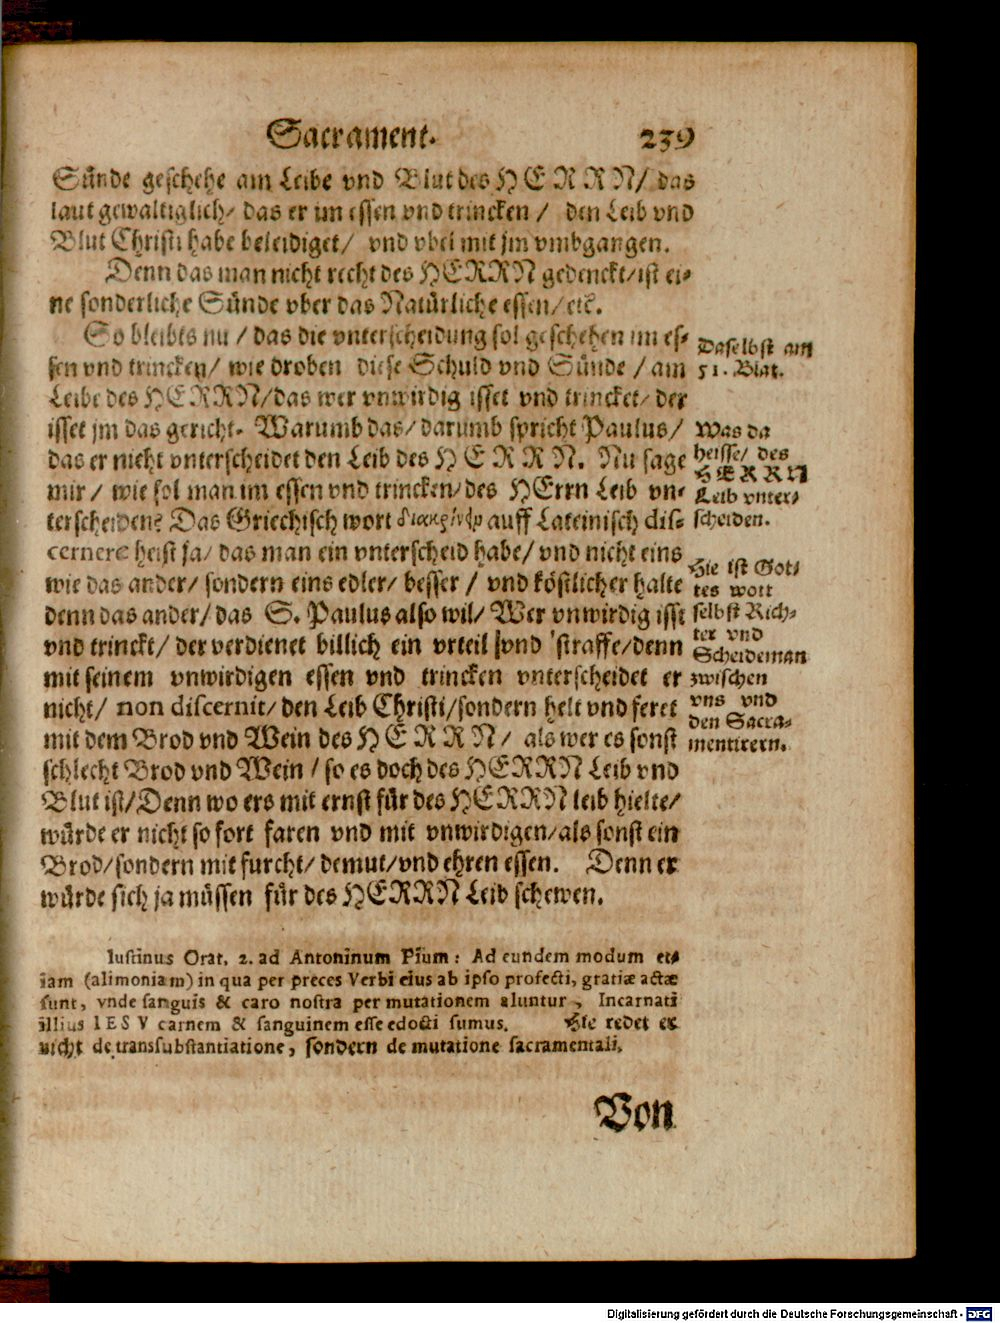 Sacrament. 239
Sünde geschehe am Leibe vnd Blut des HERRN/ das
laut gewaltiglich/ das er im essen vnd trincken / den Leib vnd
Blut Christi habe beleidiget/ vnd vbel mit jm vmbgangen.
Denn das man nicht recht des HERRN gedenckt/ist ei-
ne sonderliche Sünde vber das Natürliche essen/etc.
So bleibts nu / das die vnterscheidung sol geschehen im es-
sen vnd trincken/ wie droben diese Schuld vnd Sünde / am
Leibe des HERRN/das wer vnwirdig isset vnd trincket/ der
isset jm das gericht. Warumb das/ darumb spricht Paulus/
das er nicht vnterscheidet den Leib des HERRN. Nu sage
mir / wie sol man im essen vnd trincken/des HErrn Leib vn-
terscheiden? Das Griechisch wort auff Lateinisch dis-
cernere heist ja/ das man ein vnterscheid habe/ vnd nicht eins
wie das ander/ sondern eins edler/ besser / vnd köstlicher halte
denn das ander/ das S. Paulus also wil/ Wer vnwirdig isst
vnd trinckt/ der verdienet billich ein vrteil vnd straffe/denn
mit seinem vnwirdigen essen vnd trincken vnterscheidet er
nicht/ non discernit/ den Leib Christi/sondern helt vnd feret
mit dem Brod vnd Wein des HERRN/ als wer es sonst
schlecht Brod vnd Wein / so es doch des HERRN Leib vnd
Blut ist/Denn wo ers mit ernst für des HERRN leib hielte/
würde er nicht so fort faren vnd mit vnwirdigen/als sonst ein
Brod/sondern mit furcht/ demut/vnd ehren essen. Denn er
würde sich ja müssen für des HERRN Leib schewen.
Daselbst am
51. Blat.
Was da
heisse/ des
HERRN
Leib vnter/
scheiden.
Hie ist Got/
tes wort
selbst Rich-
ter vnd
Scheideman
zwischen
vns vnd
den Sacra-
mentirern.
Iustinus Orat. 2. ad Antoninum Pium : Ad eundem modum et-
iam (alimoniam) in qua per preces Verbi eius ab ipso profecti, gratiæ actæ
sunt, vnde sanguis & caro nostra per mutationem aluntur, Incarnati
illius IESV carnem & sanguinem esse edocti sumus. Hie redet er
nicht de transsubstantiatione, sondern de mutatione sacramentali.
Von
Digitalisierung gefördert durch die Deutsche Forschungsgemeinschaft - DFG